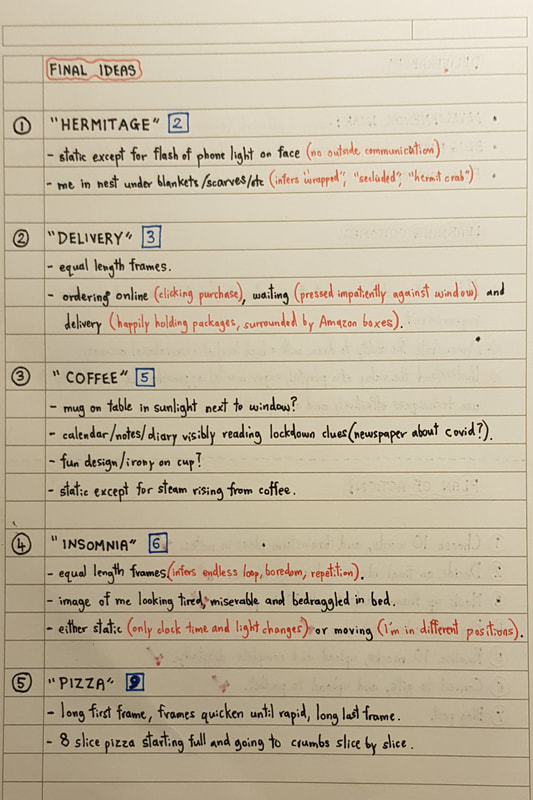 FINAL IDEAS
① "HERMITAGE" 2
- static except for flash of phone light on face (no outside communication)
- me in nest under blankets/scarves/etc (infers "wrapped", "secluded", "hermit crab")
② "DELIVERY" 3
- equal length frames.
- ordering online (clicking purchase), waiting (pressed impatiently against window) and
delivery (happily holding packages, surrounded by Amazon boxes).
③ "COFFEE" 5
- mug on table in sunlight next to window?
- calendar/notes/diary visibly reading lockdown clues (newspaper about covid?).
- fun design/irony on cup?
- static except for steam rising from coffee.
④ "INSOMNIA" 6
- equal length frames (infers endless loop, boredom, repetition).
- image of me looking tired, miserable and bedraggled in bed.
- either static (only clock time and light changes) or moving (I'm in different positions).
⑤ "PIZZA" 9
- long first frame, frames quicken until rapid, long last frame.
- 8 slice pizza starting full and going to crumbs slice by slice.